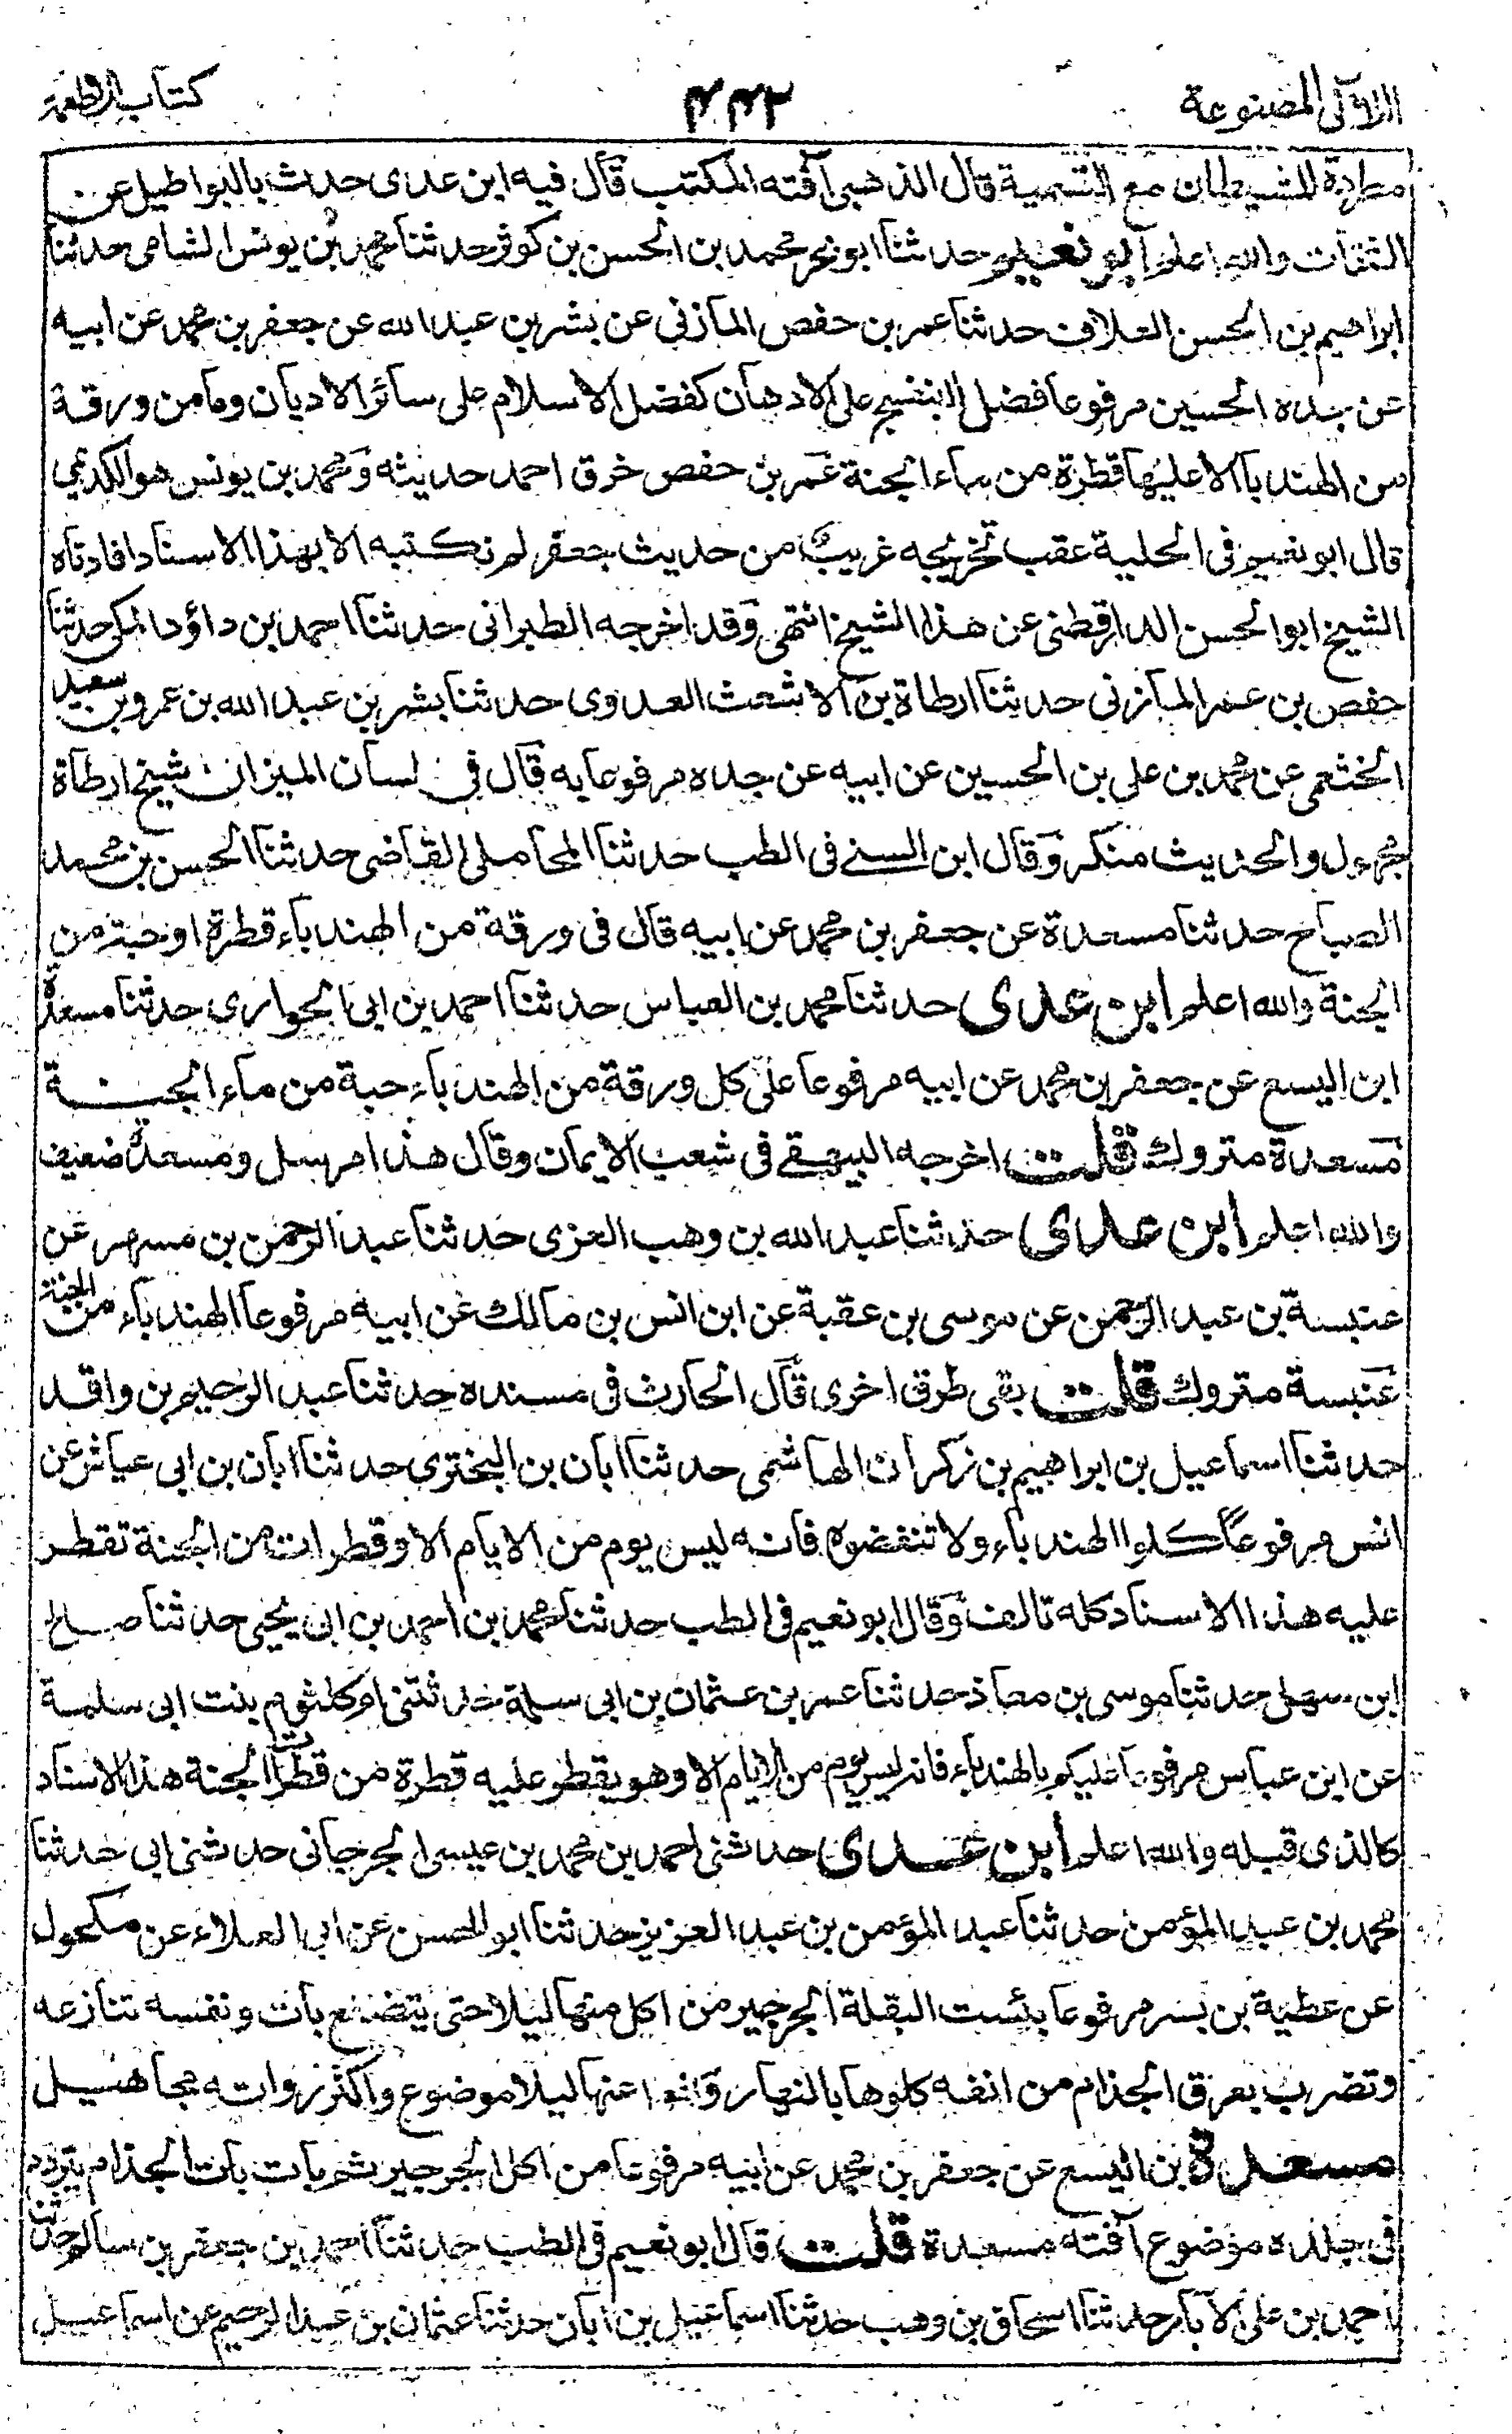 اللآلى المصنوعة ٤٤٢ كتاب الاطعمة
مطردة للشيطان مع التسمية قال الذهبى آفته المكتب قال فيه ابن عدى حدث بالبواطيل عن
الثقات والله اعلم ابو نعيم حدثنا ابو بحر محمد بن الحسن بن كوثر حدثنا محمد بن يونس الشامى حدثنا
ابراهيم بن الحسن العلاف حدثنا عمر بن حفص المازنى عن بشر بن عبد الله عن جعفر بن محمد عن ابيه
عن جده الحسين مرفوعا فضل البنفسج على الادهان كفضل الاسلام على سائر الاديان وما من ورقة
من الهندبا الا عليها قطرة من ماء الجنة عمر بن حفص خرق احمد حديثه ومحمد بن يونس هو الكديمي
قال ابو نعيم فى الحلية عقب تخريجه غريب من حديث جعفر لم نكتبه الا بهذا الاسناد افادناه
الشيخ ابو الحسن الدارقطنى عن هذا الشيخ انتهى وقد اخرجه الطبرانى حدثنا احمد بن داؤد المكى حدثنا
حفص بن عمر المازنى حدثنا ارطاة بن الاشعث العدوى حدثنا بشر بن عبد الله بن عمرو بن سعيد
الخثعمى عن محمد بن على بن الحسين عن ابيه عن جده مرفوعا به قال فى لسان الميزان شيخ ارطاة
مجهول والحديث منكر وقال ابن السنے فى الطب حدثنا المحاملى القاضى حدثنا الحسن بن محمد
الصباح حدثنا مسعدة عن جعفر بن محمد عن ابيه قال فى ورقة من الهندباء قطرة او حبة من
الجنة والله اعلم ابن عدى حدثنا محمد بن العباس حدثنا احمد بن ابى الحوارى حدثنا مسعدة
ابن اليسع عن جعفر بن محمد عن ابيه مرفوعا على كل ورقة من الهندباء حبة من ماء الجنة
مسعدة متروك قلت اخرجه البيهقے فى شعب الايمان وقال هذا مرسل ومسعدة ضعيف
والله اعلم ابن عدى حدثنا عبد الله بن وهب الغزى حدثنا عبد الرحمن بن مسهر عن
عنبسة بن عبد الرحمن عن موسى بن عقبة عن ابن انس بن مالك عن ابيه مرفوعا الهندباء من الجنة
عنبسة متروك قلت بقى طرق اخرى قال الحارث فى مسنده حدثنا عبد الرحيم بن واقد
حدثنا اسماعيل بن ابراهيم بن زكران الهاشمى حدثنا ابان بن البخترى حدثنا ابان بن ابى عياش عن
انس مرفوعا كلوا الهندباء ولا تنفضوه فانه ليس يوم من الايام الا وقطرات من الجنة تقطر
عليه هذا الاسناد كله تالف وقال ابو نعيم فى الطب حدثنا محمد بن احمد بن ابى يحيى حدثنا صالح
ابن سهل حدثنا موسى بن معاذ حدثنا عمر بن عثمان بن ابى سلمة حدثتنى ام كلثوم بنت ابى سلمة
عن ابن عباس مرفوعا عليكم بالهندباء فانه ليس يوم من الايام الا وهو يقطر عليه قطرة من قطرات الجنة هذا الاسناد
كالذى قبله والله اعلم ابن عدى حدثنى احمد بن محمد بن عيسى الجرجانى حدثنى ابى حدثنا
محمد بن عبد المؤمن حدثنا عبد المؤمن بن عبد العزيز حدثنا ابو الحسن عن ابى العلاء عن مكحول
عن عطية بن بسر مرفوعا بئست البقلة الجرجير من اكل منها ليلا حتى يتضلع بات ونفسه تنازعه
وتضرب بعرق الجذام من انفه كلوها بالنهار وكفوا عنها ليلا موضوع واكثر رواته مجاهيل
مسعدة بن اليسع عن جعفر بن محمد عن ابيه مرفوعا من اكل الجرجير ثم بات بات الجذام يتردد
فى جلده موضوع آفته مسعدة قلت قال ابو نعيم فى الطب حدثنا احمد بن جعفر بن سالم حدثنا
احمد بن على الآبار حدثنا اسحاق بن وهب حدثنا اسماعيل بن ابان حدثنا عثمان بن عبد الرحيم عن اسماعيل